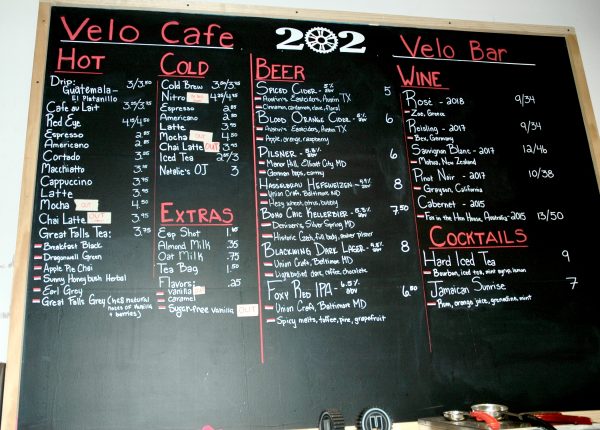 Velo Cafe
202
Velo Bar
HOT
Drip: 3/3.50
Guatemala-
El Platanillo
Cafe au Lait
Red Eye 4.00/4.50
Espresso
Americano
Cortado 3.25
Macchiato
Cappuccino 3.95
Latte
Mocha OUT
Chai Latte OUT 3.95
Great Falls Tea: 3.75
Breakfast Black
Dragonwell Green
Apple Pie Chai
Sunny Honeybush Herbal
Earl Grey
Great Falls Grey (has natural
notes of vanilla
+ berries)
COLD
Cold Brew
Nitro
Espresso
Americano
Latte
Mocha OUT 4.50
Chai Latte OUT
Iced Tea
Natalie's OJ 3
EXTRAS
Esp Shot
Almond Milk .75
Oat Milk .75
Tea Bag 1.50
Flavors: .25
vanilla
caramel
Sugar-free vanilla OUT
BEER
Spiced Cider - 5% ABV 5
Austin Eastciders, Austin TX
Cinnamon, cardamom, clove, floral
Blood Orange Cider - 5% ABV 6
Austin Eastciders, Austin TX
Apple, orange, raspberry
Pilsner - 6
Manor Hill, Ellicott City MD
German hops, corny
Hefeweizen - 8
Union Craft, Baltimore MD
Hazy wheat, citrus, bubbly
Boho Chic Kellerbier - 7.50
Denizens, Silver Spring, MD
Historic Czech, full body, amber pilsner
Blackwing Dark Lager - 8
Union Craft, Baltimore MD
Light bodied dark, coffee, chocolate
Foxy Red IPA - 6.5% ABV
Union Craft, Baltimore MD
Spicy malts, toffee, pine, grapefruit
WINE
Rosé - 2018 9/34
Zoe, Greece
Reisling - 2017 9/34
Bex, Germany
Sauvignon Blanc - 2017 12/46
Mohua, New Zealand
Pinot Noir - 2017 10/38
Grayson, California
Cabernet - 2015 13/50
Fox in the Hen House, Australia - 2015
COCKTAILS
Hard Iced Tea 9
Bourbon, iced tea, mint syrup, lemon
Jamaican Sunrise 7
Rum, orange juice, grenadine, mint